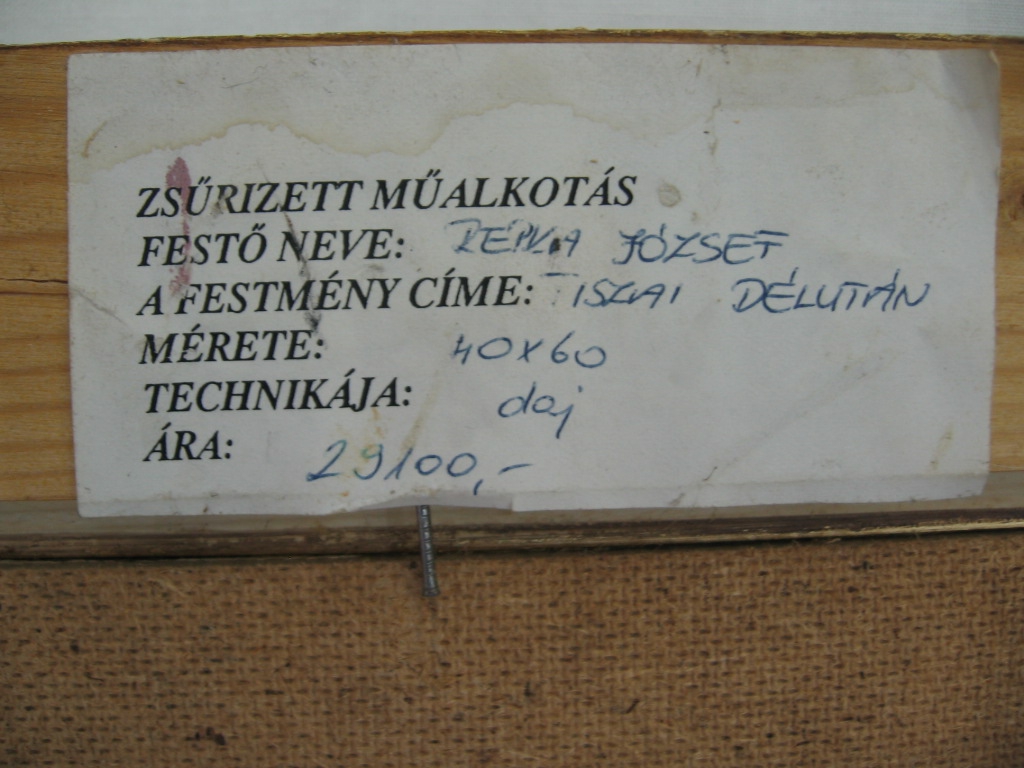 ZSŰRIZETT MŰALKOTÁS
FESTŐ NEVE: JÓZSEF
A FESTMÉNY CÍME: TISZAI DÉLUTÁN
MÉRETE: 40X60
TECHNIKÁJA: olaj
ÁRA: 29100,-